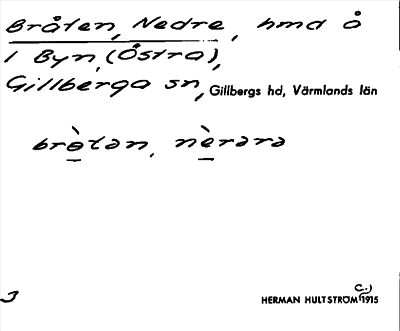 Bråten, Nedre, hmd å
1 Byn, (Östra),
Gillberga sn, Gillbergs hd, Värmlands län
brò̱tən, nè̱rərə
3
HERMAN HULTSTRÖM (C.) 1915